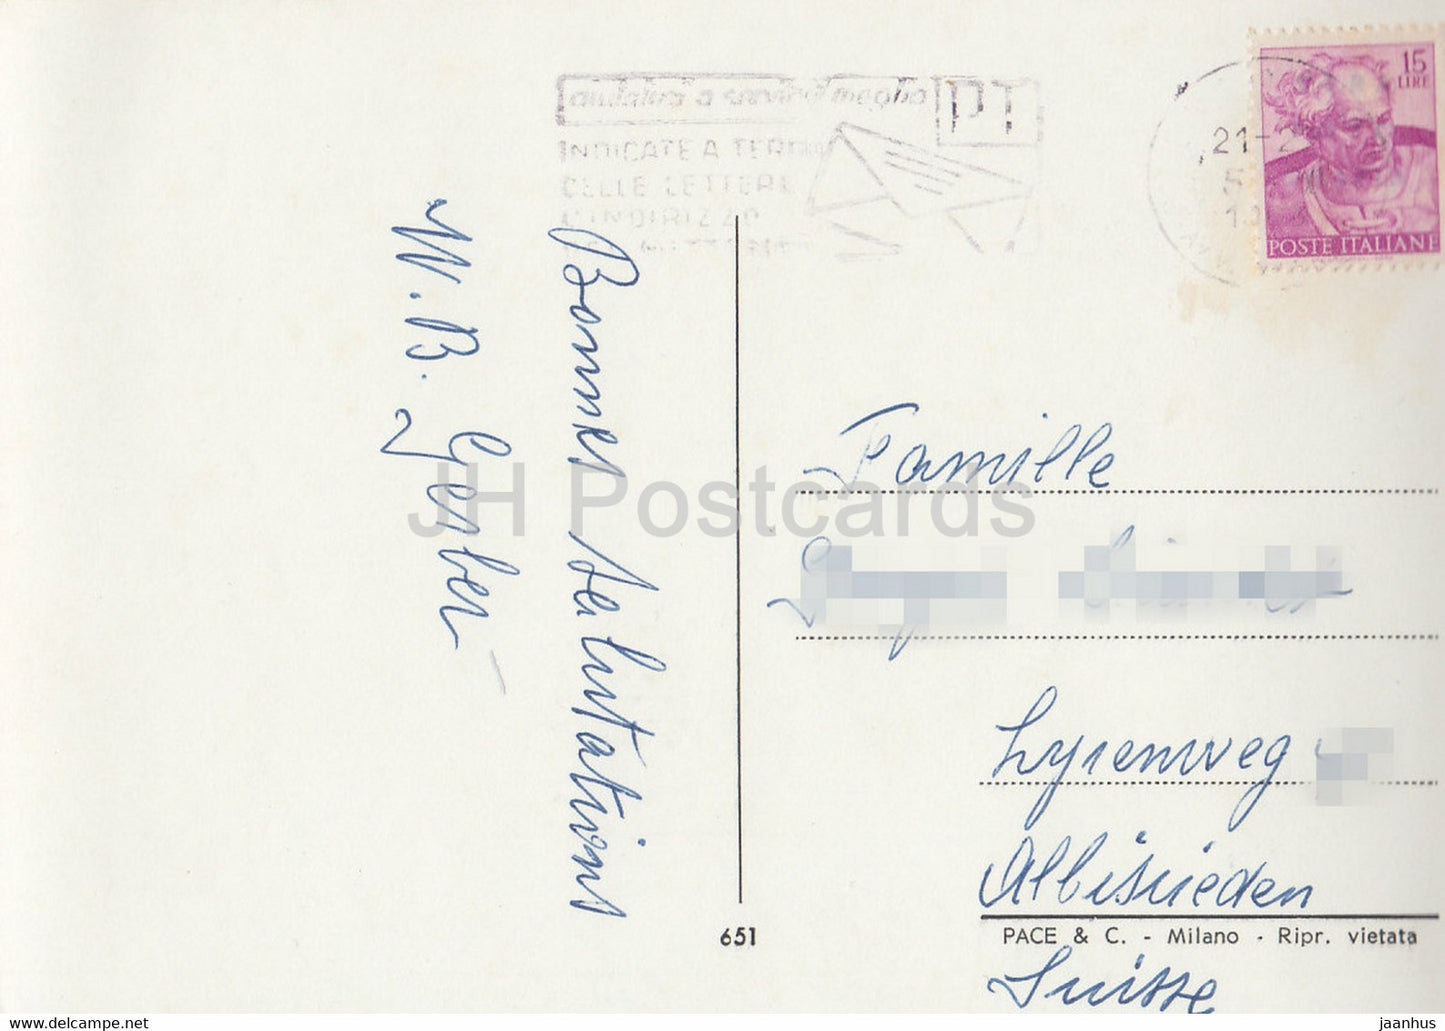 aiutateci a servirvi meglio
PT
INDICATE A TERGO
DELLE LETTERE
L'INDIRIZZO
15
LIRE
POSTE ITALIANE
21-2
Bonnes salutations
W. B. Gerber
Famille
Lyrenweg
Albisrieden
Suisse
651
PACE & C. - Milano - Ripr. vietata
JH Postcards
www.delcampe.net
jaanhus